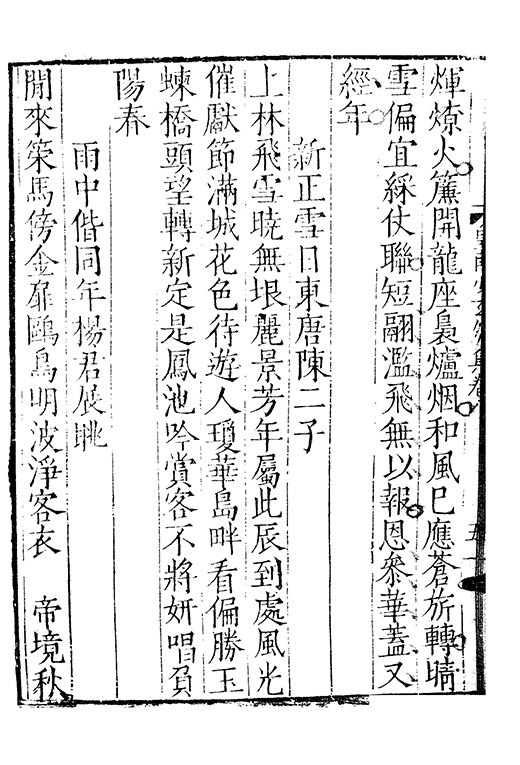 煇燎火簾開龍座裊爐烟和風巳應蒼旂轉晴
雪偏宜綵仗聯短翮濫飛無以報恩叅華蓋又
經年
新正雪日東唐陳二子
上林飛雪曉無垠麗景芳年屬此辰到處風光
催獻節滿城花色待遊人瓊華島畔看偏勝玉
蝀橋頭望轉新定是鳳池吟賞客不將妍唱負
陽春
雨中偕同年楊君展眺
閒來策馬傍金扉鷗鳥明波淨客衣 帝境秋